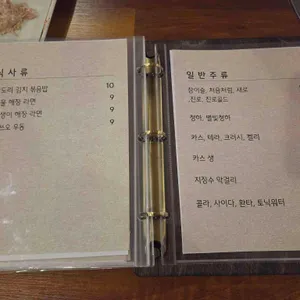 식사류
도리 김치 볶음밥 10
물 해장 라면 9
생이 해장 라면 9
쯔오 우동 9
일반주류
참이슬, 처음처럼, 새로
진로, 진로골드
청하, 별빛청하
카스, 테라, 크러시, 켈리
카스 생
지장수 막걸리
콜라, 사이다, 환타, 토닉워터